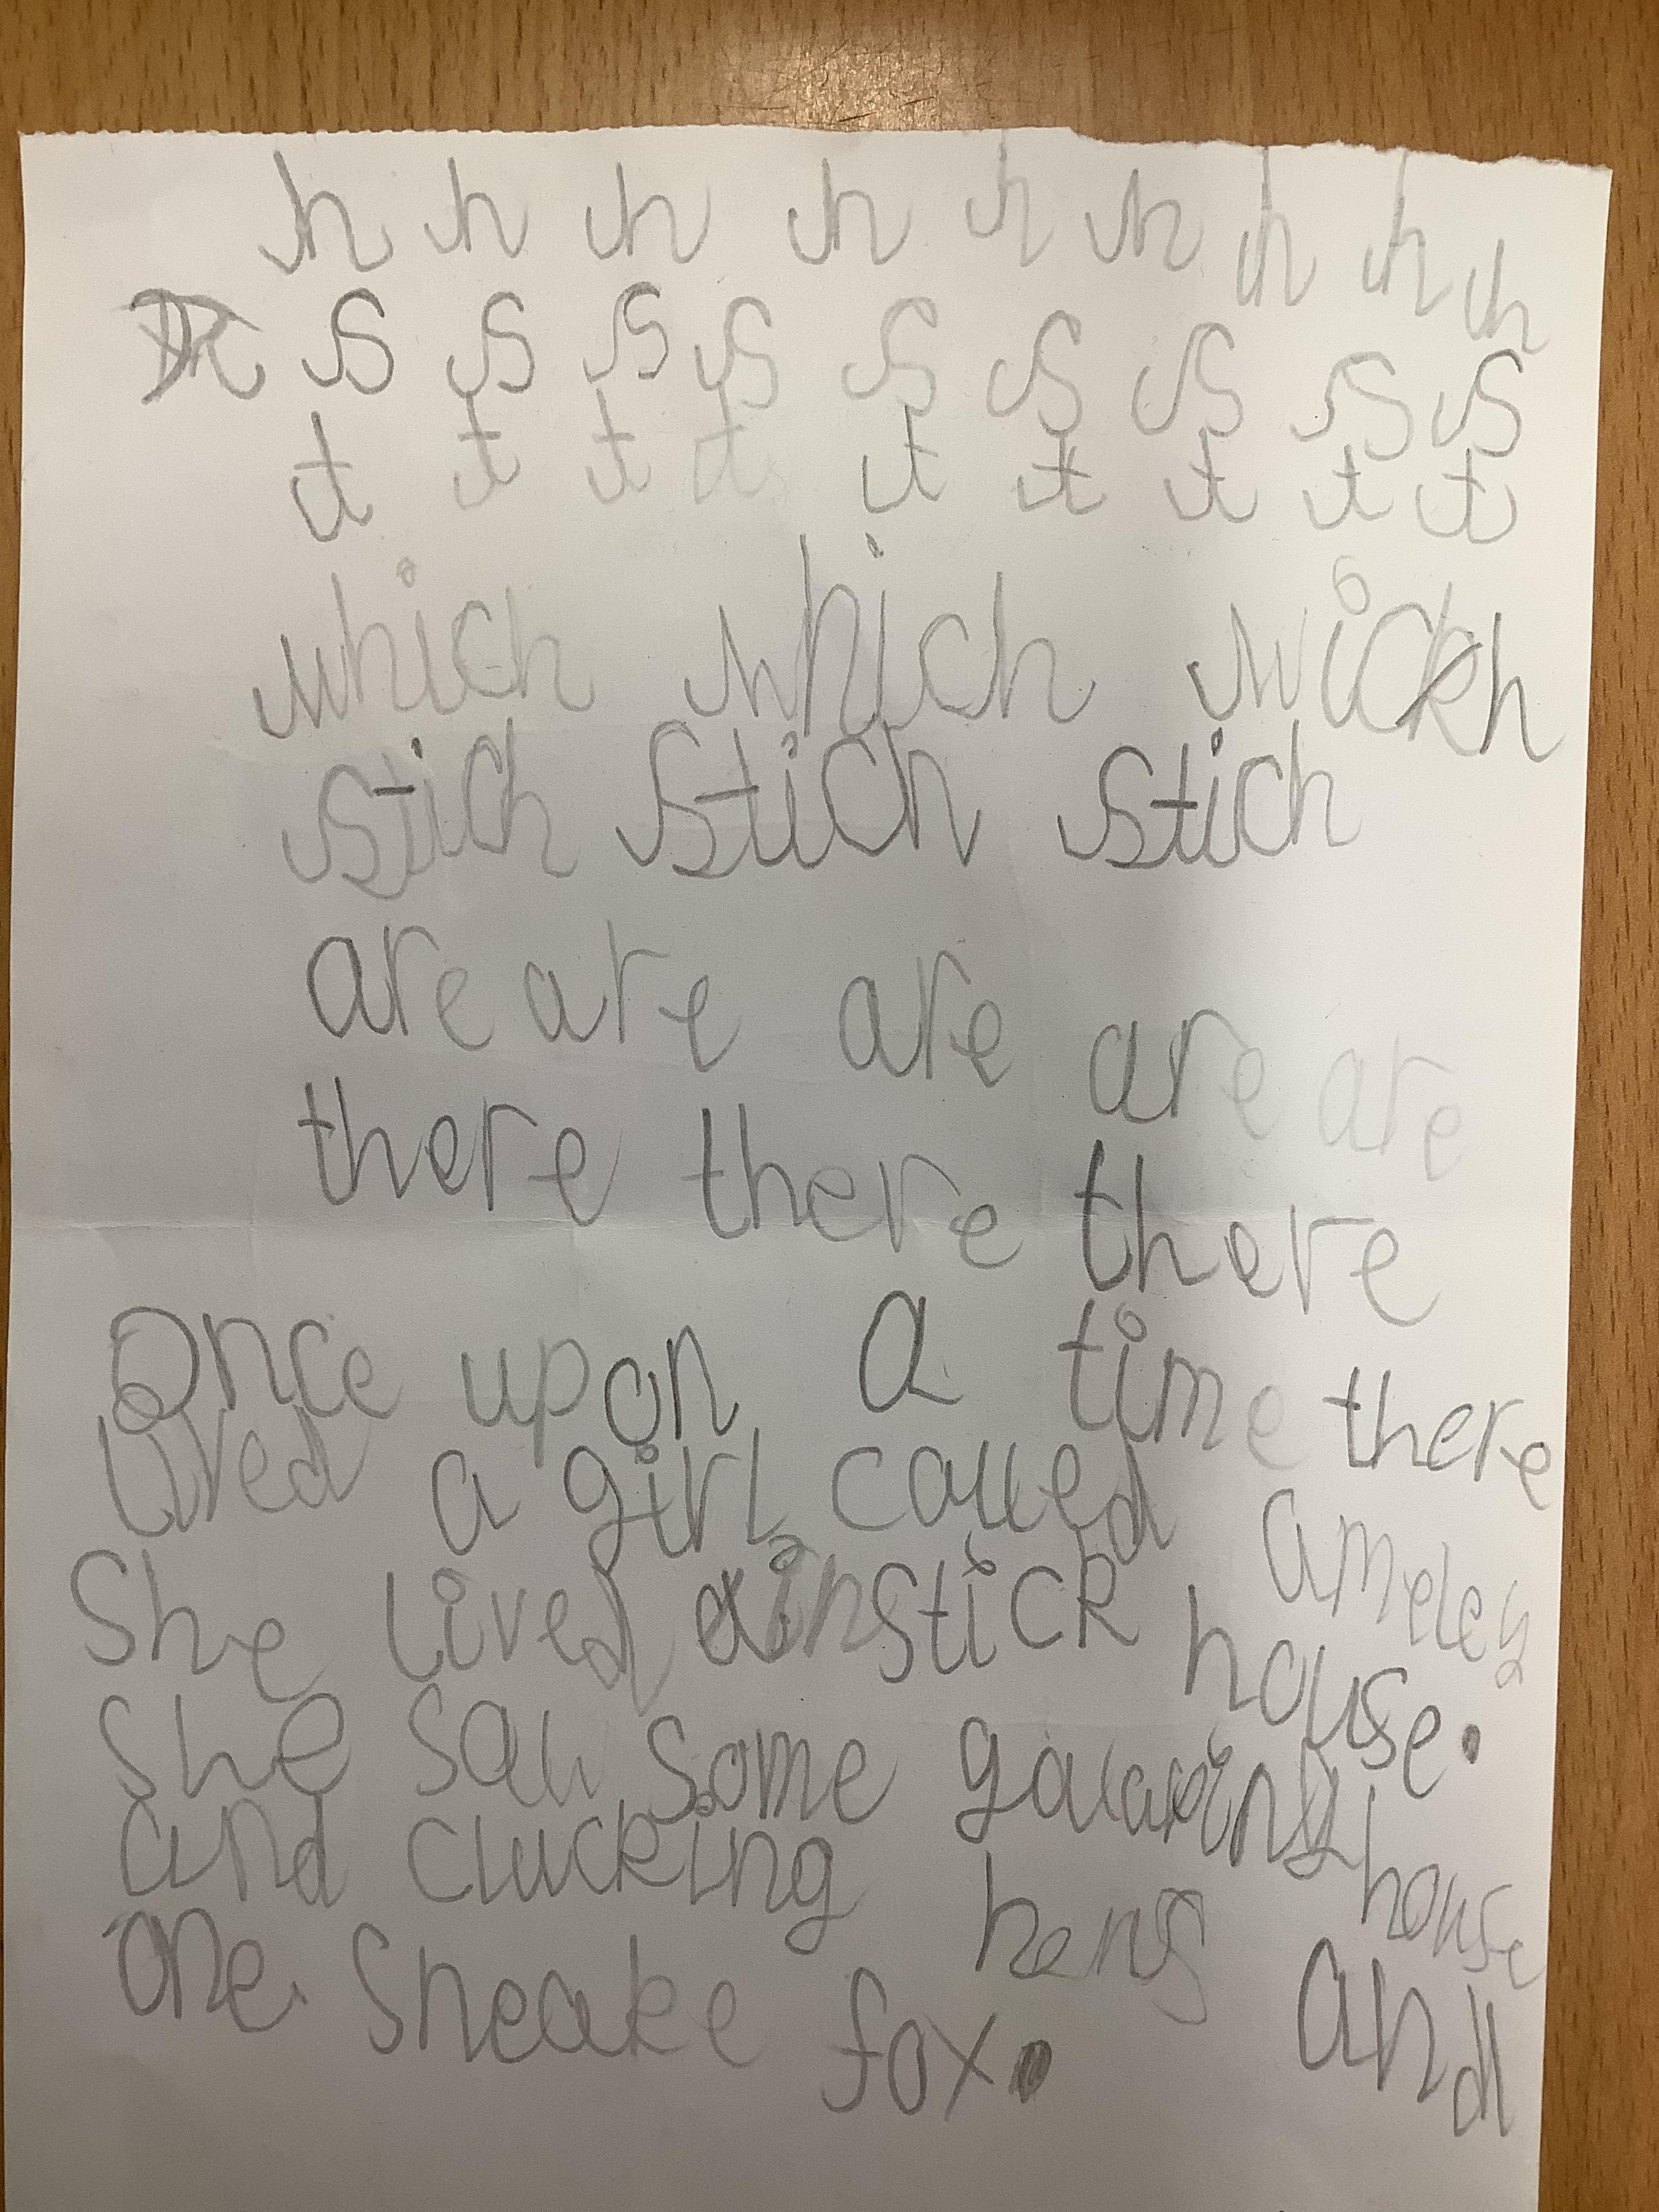 h h h h h h h h h
s s s s s s s s s
t t t t t t t t t
which which wich
stich stich stich
are are are are are
there there there
Once upon a time there
lived a girl called ameley
She lived in stick house.
She saw some house
and clucking hens and
one sneake fox.